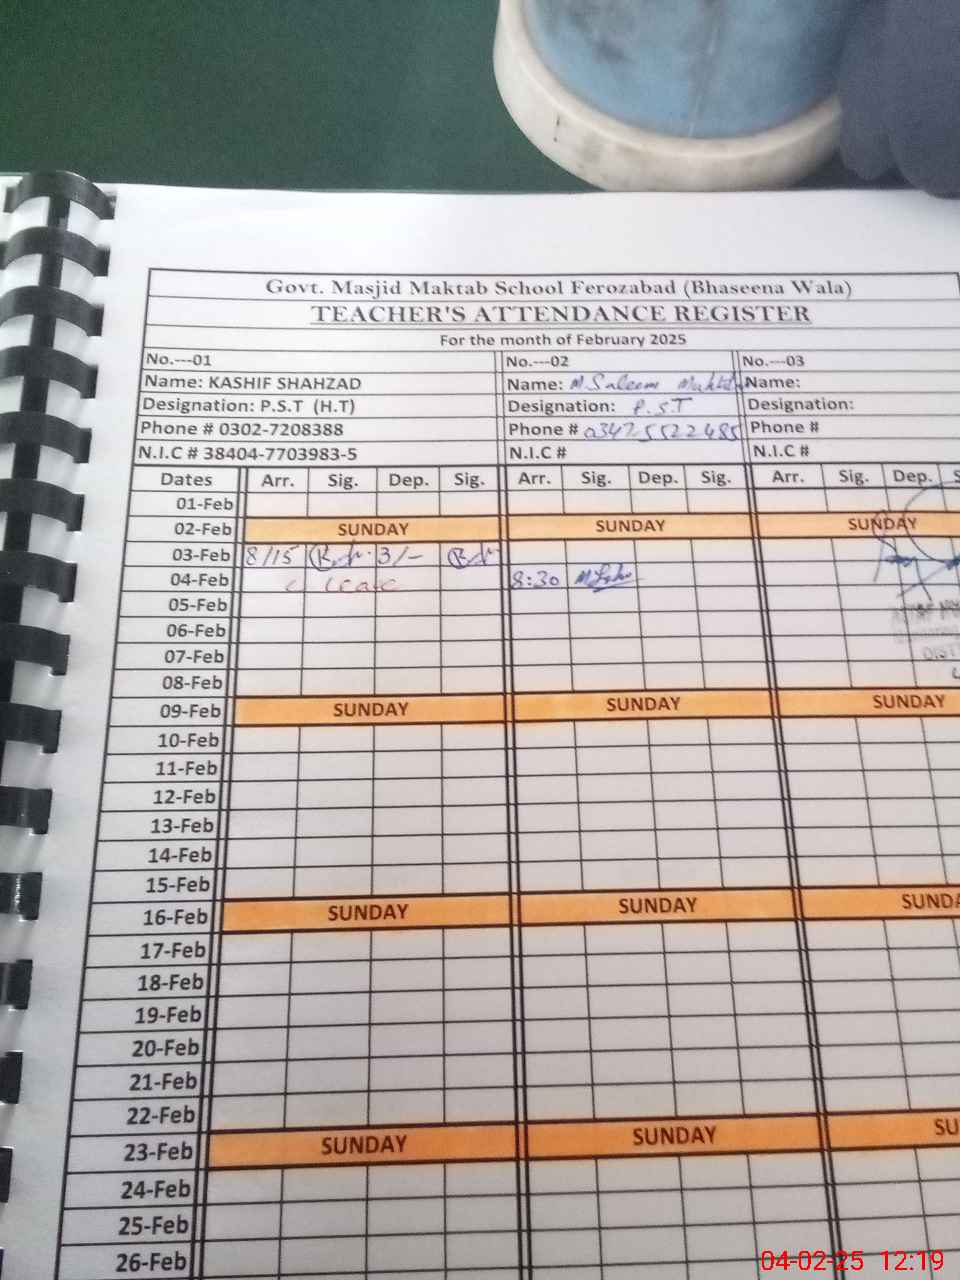 Govt. Masjid Maktab School Ferozabad (Bhaseena Wala)
TEACHER'S ATTENDANCE REGISTER
For the month of February 2025
No.---01 No.---02 No.---03
Name: KASHIF SHAHZAD Name: M Saleem Name:
Designation: P.S.T (H.T) Designation: P.S.T Designation:
Phone # 0302-7208388 Phone # 03475522485 Phone #
N.I.C # 38404-7703983-5 N.I.C # N.I.C #
Dates Arr. Sig. Dep. Sig. Arr. Sig. Dep. Sig. Arr. Sig. Dep.
01-Feb
02-Feb SUNDAY SUNDAY SUNDAY
03-Feb 8/15 3/-
04-Feb Leave 8:30
05-Feb
06-Feb
07-Feb
08-Feb
09-Feb SUNDAY SUNDAY SUNDAY
10-Feb
11-Feb
12-Feb
13-Feb
14-Feb
15-Feb
16-Feb SUNDAY SUNDAY SUNDA
17-Feb
18-Feb
19-Feb
20-Feb
21-Feb
22-Feb
23-Feb SUNDAY SUNDAY SU
24-Feb
25-Feb
26-Feb
04-02-25 12:19